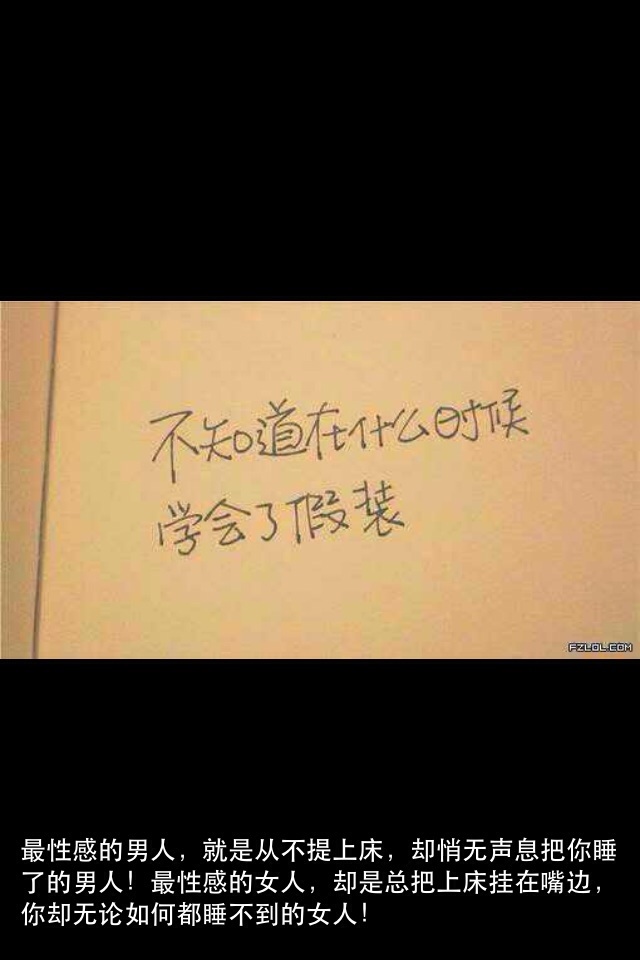 不知道在什么时候
学会了假装
FZLOL.COM
最性感的男人，就是从不提上床，却悄无声息把你睡
了的男人！最性感的女人，却是总把上床挂在嘴边，
你却无论如何都睡不到的女人！